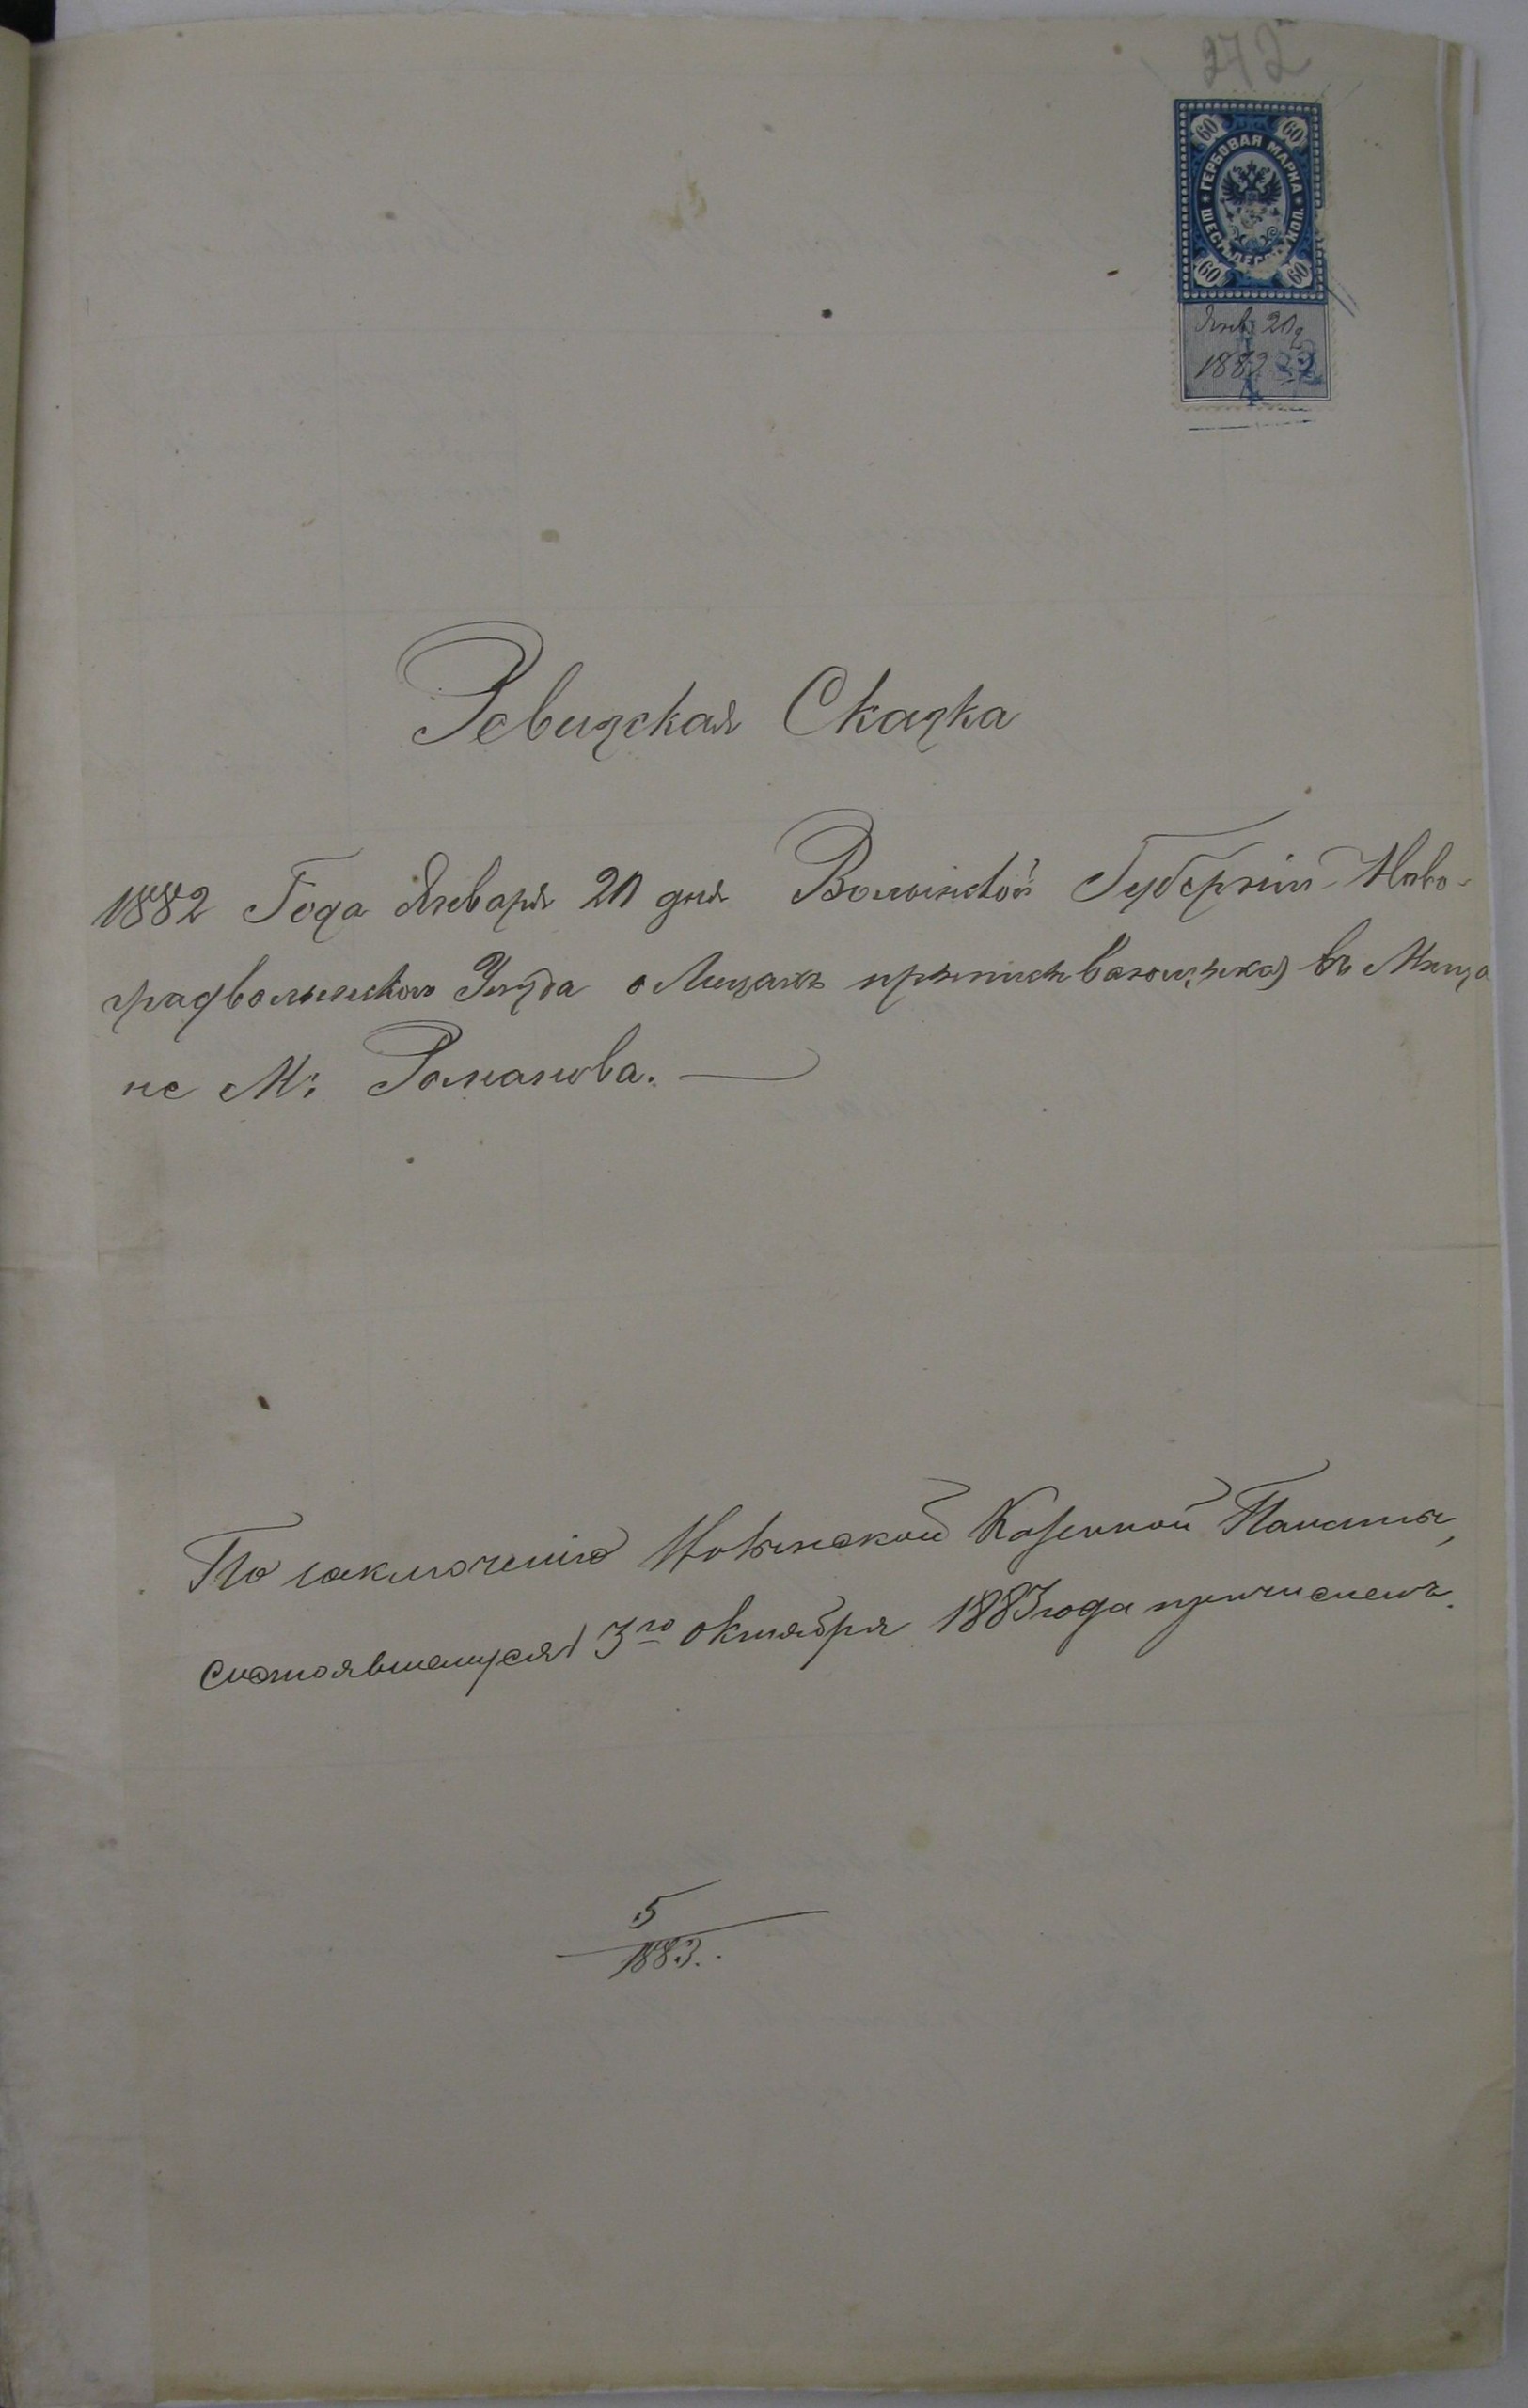 272
60 60
ГЕРБОВАЯ МАРКА
ШЕСТЬДЕСЯТЪ КОП.
60 60
Янв. 20 д
1882
Ревизская Сказка
1882 Года Января 20 дня Волынской Губерніи Ново-
градволынскаго Уезда о Лицахъ приписывающихся въ Меща
не М: Романова.
По заключенію Волынской Казенной Палаты,
состоявшемуся 3го Октября 1883 года причислены.
5
1883.